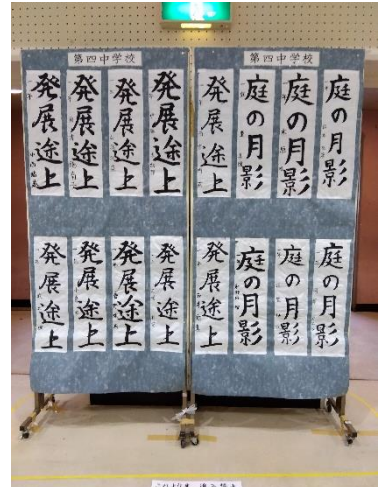 第四中学校
発展途上
発展途上
発展途上
発展途上
発展途上
発展途上
発展途上
発展途上
第四中学校
発展途上
庭の月影
庭の月影
庭の月影
発展途上
庭の月影
庭の月影
庭の月影